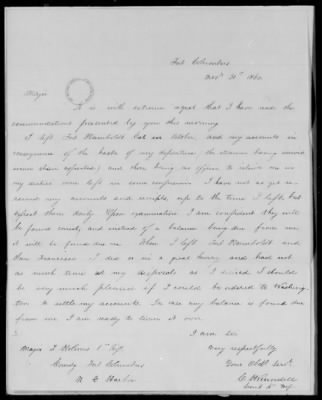 Fort Columbus
Nov. 30th 1860
Major
It is with extreme regret that I have read the
communications presented by you this morning
I left Fort Humboldt Cal in October and my accounts in
consequence of the haste of my departure, the steamer being
and there being no officer to relieve me in
my duties were left in some confusion. I have not as yet re-
ceived my accounts and receipts, up to the time I left, but
expect them daily. Upon examination I am confident they will
be found correct, and instead of a balance being due from me
it will be found due me. When I left Fort Humboldt and
San Francisco I did so in a great hurry and had not
as much time at my disposal as I wished. I should
be very much pleased if I could be ordered to Washing-
ton to settle my accounts. In case any balance is found due
from me I am ready to turn it over
I am Sir
Very respectfully
Your Obdt Servt.
Major T. Holmes 8" Inf.
Comdg Fort Columbus
N. Y. Harbor
Lieut 4" Inf